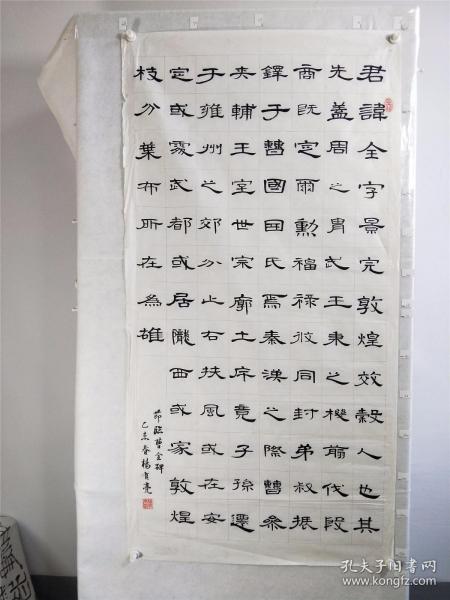 君諱全字景完敦煌效穀人也其
先蓋周之胄武王秉之機翦伐殷
商既定爾勳福祿攸同封弟叔振
鐸于曹國因氏焉秦漢之際曹參
夾輔王室世宗廓土斥竟子孫遷
于雍州之郊分止右扶風或在安
定或處武都或居隴西或家敦煌
枝分葉布所在為雄
節臨曹全碑
春楊亮
孔夫子旧书网
www.kongfz.com